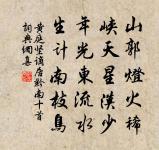 山郭燈火稀
峽天星漢少
年光東流水
生計南枝鳥
黃庭堅謫居黔南十首
詞典網集